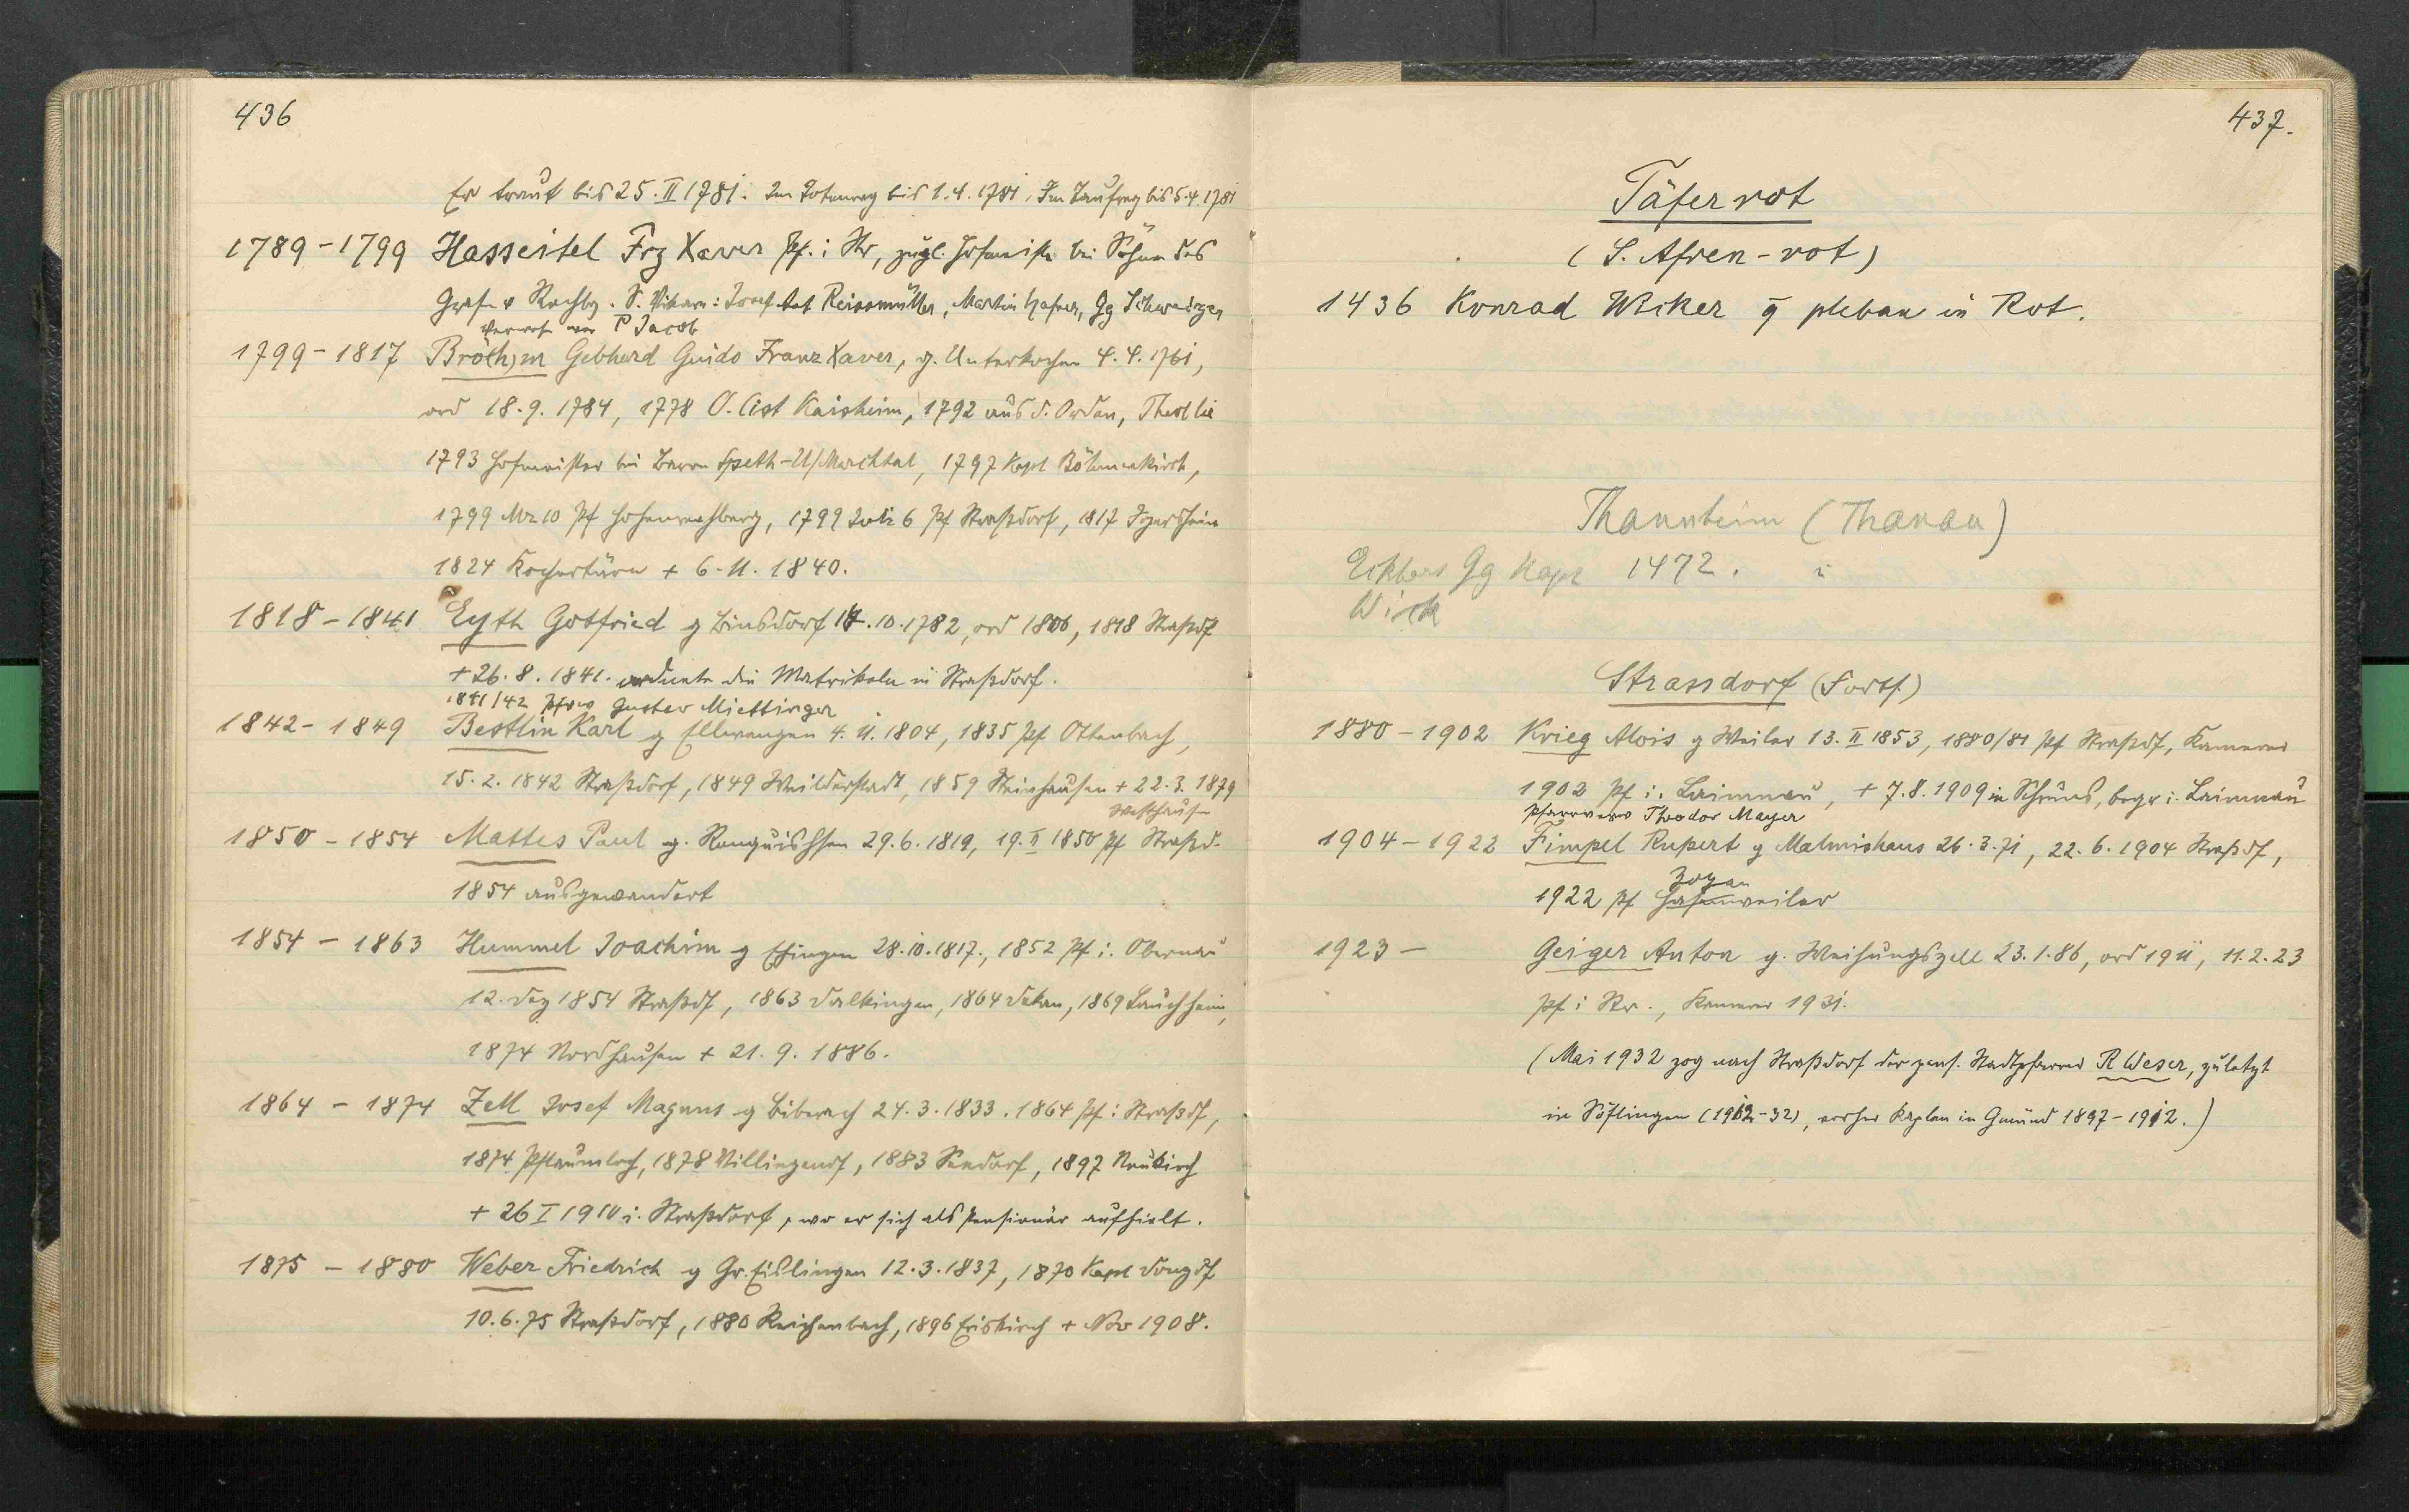 436
Er traut bis 25. II 1781. Im Totenreg bis 1. 4. 1781, Im Taufreg bis 5. 4. 1781
1789-1799 Hasseitel Frz Xaver Pf. i Str, zugl. Hofmeister bei Söhnen des
Grafen v Rechbg. S. Vikare: Josef Ant Reissmüller, Martin Hafner, Gg Schweizer
Verwes war P Jacob
1799-1817 Brö(h)m Gebhard Guido Franz Xaver, g. Unterkochen 4. 4. 1761,
ord 18. 9. 1784, 1778 O. Cist Kaisheim, 1792 aus d. Orden, Theol lic
1793 Hofmeister bei Baron Speth-U/Marchtal, 1797 Kapl Böhmenkirch,
1799 Mz 10 Pf Hohenrechberg, 1799 Juli 6 Pf Straßdorf, 1817 Igersheim
1824 Kochertürn + 6. 11. 1840.
1818-1841 Eyth Gotfried g Binsdorf 14. 10. 1782, ord 1806, 1818 Straßdf
+ 26. 8. 1841. ordnete die Matrikeln in Straßdorf.
1841/42 Pfvw Gustav Miettinger
1842-1849 Bestlin Karl g Ellwangen 4. 11. 1804, 1835 Pf Ottenbach,
15. 2. 1842 Straßdorf, 1849 Weilderstadt, 1859 Steinhausen + 22. 3. 1879
Westhausen
1850-1854 Mattes Paul g. Renquishausen 29. 6. 1819, 19. II 1850 Pf Straßd.
1854 ausgewandert
1854-1863 Hummel Joachim g Ehingen 28. 10. 1817., 1852 Pf i. Obernau
12. Dez 1854 Straßdf, 1863 Dalkingen, 1864 Dekan, 1869 Lauchheim,
1874 Nordhausen + 21. 9. 1886.
1864-1874 Zell Josef Magnus g Biberach 24. 3. 1833. 1864 Pf i Straßdf,
1874 Pflaumloch, 1878 Villingendf, 1883 Seedorf, 1897 Neukirch
+ 26 I 1910 i. Straßdorf, wo er sich als Pensionär aufhielt.
1875-1880 Weber Friedrich g Gr. Eislingen 12. 3. 1837, 1870 Kapl Donzdf
10. 6. 75 Straßdorf, 1880 Reichenbach, 1896 Eriskirch + Nov 1908.
437.
Täferrot
(S. Afren-rot)
1436 Konrad Wiker pleban in Rot.
Thannheim (Thanau)
Gg Kapl 1472.
Wick
Strassdorf (Forts.)
1880-1902 Krieg Alois g Weiler 13. II 1853, 1880/81 Pf Straßdf, Kamerer
1902 Pf i. Laimnau, + 7. 8. 1909 in Schruns, begr i. Laimnau
Pfarrverw Theodor Mayer
1904-1922 Fimpel Rupert g Malmishaus 26. 3. 71, 22. 6. 1904 Straßdf,
Zogen
1922 Pf Hasenweiler
1923- Geiger Anton g. Weihungszell 23. 1. 86, ord 1911, 11. 2. 23
Pf i Str., Kamerer 1931.
(Mai 1932 zog nach Straßdorf der pens. Stadtpfarrer R Weser, zuletzt
in Söflingen (1912-32), vorher Kaplan in Gmünd 1897-1912.)